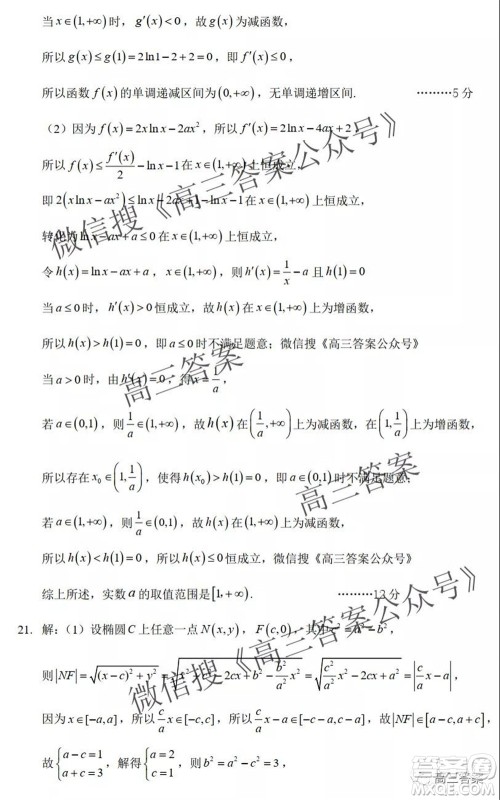 当 x∈(1,+∞) 时，g′(x)<0，故 g(x) 为减函数，
所以 g(x)≤g(1)=2ln1-2+2=0，即 f′(x)≤0，
所以函数 f(x) 的单调递减区间为 (0,+∞)，无单调递增区间. ………5 分
（2）因为 f(x)=2xlnx-2ax²，所以 f′(x)=2lnx-4ax+2，
所以 f(x)≤f′(x)/2-lnx-1 在 x∈(1,+∞) 上恒成立，
即 2(xlnx-ax²)≤lnx-2ax+1-lnx-1 在 x∈(1,+∞) 上恒成立，
转化为 lnx-ax+a≤0 在 x∈(1,+∞) 上恒成立，
令 h(x)=lnx-ax+a，x∈(1,+∞)，则 h′(x)=1/x-a 且 h(1)=0
当 a≤0 时，h′(x)>0 恒成立，故 h(x) 在 x∈(1,+∞) 上为增函数，
所以 h(x)>h(1)=0，即 a≤0 时不满足题意；微信搜《高三答案公众号》
当 a>0 时，由 h′(x)=0，得 x=1/a，
若 a∈(0,1)，则 1/a∈(1,+∞)，故 h(x) 在 (1/a,+∞) 上为减函数，在 (1,1/a) 上为增函数，
所以存在 x₀∈(1,1/a)，使得 h(x₀)>h(1)=0，即 a∈(0,1) 时不满足题意；
若 a∈[1,+∞)，则 1/a∈(0,1]，故 h(x) 在 (1,+∞) 上为减函数，
所以 h(x)<h(1)=0 恒成立，微信搜《高三答案公众号》
综上所述，实数 a 的取值范围是 [1,+∞). ………12 分
21. 解：（1）设椭圆 C 上任意一点 N(x,y)，F(c,0)，其中 c²=a²-b²，
则 |NF|=√((x-c)²+y²)=√(x²-2cx+c²+b²-b²/a² x²)=√(c²/a² x²-2cx+a²)=|c/a x-a|，
因为 x∈[-a,a]，所以 c/a x∈[-c,c]，所以 c/a x-a∈[-c-a,c-a]，故 |NF|∈[a-c,a+c]，
故 {a-c=1 a+c=3，解得 {a=2 c=1，所以 b²=a²-c²=3，
微信搜《高三答案公众号》
高三答案
高三答案
微信搜《高三答案公众号》
答案圈
高三答案